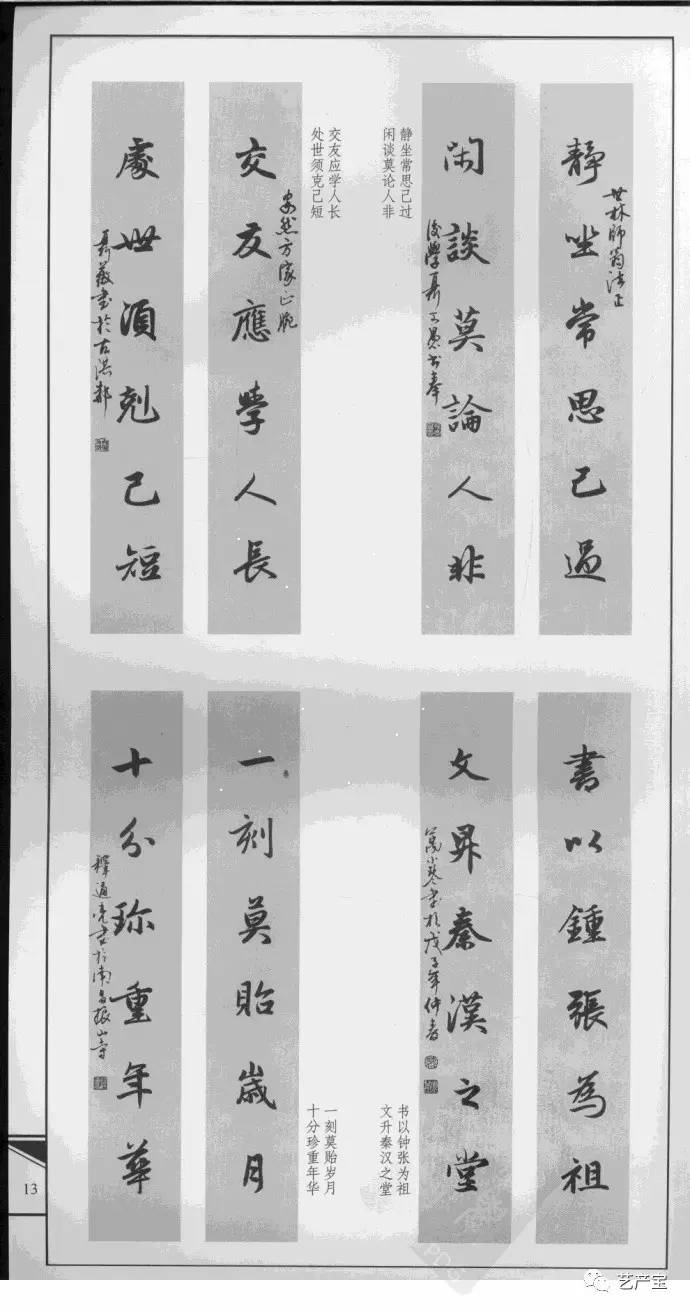 靜坐常思己過
世林師賜法正
閑談莫論人非
静坐常思己过
闲谈莫论人非
交友應學人長
安然方家正腕
處世須剋己短
聶薇書於古洪都
交友应学人长
处世须克己短
書以鍾張為祖
文昇秦漢之堂
萬小琴書於戊子年仲春
书以钟张为祖
文升秦汉之堂
一刻莫貽歲月
十分珎重年華
釋通亮書於南昌振山寺
一刻莫贻岁月
十分珍重年华
13
艺产宝